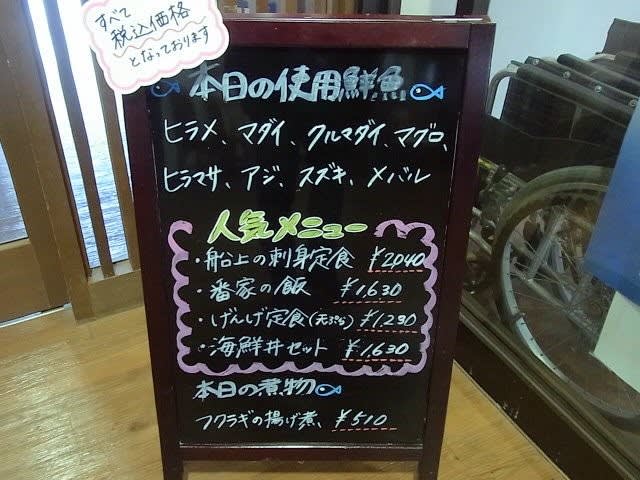 すべて
税込価格
となっております
本日の使用鮮魚
ヒラメ、マダイ、クルマダイ、マグロ、
ヒラマサ、アジ、スズキ、メバル
人気メニュー
・船上の刺身定食 ¥2040
・番家の飯 ¥1,630
・げんげ定食(天ぷら) ¥1,230
・海鮮丼セット ¥1,630
本日の煮物
フクラギの揚げ煮、¥510